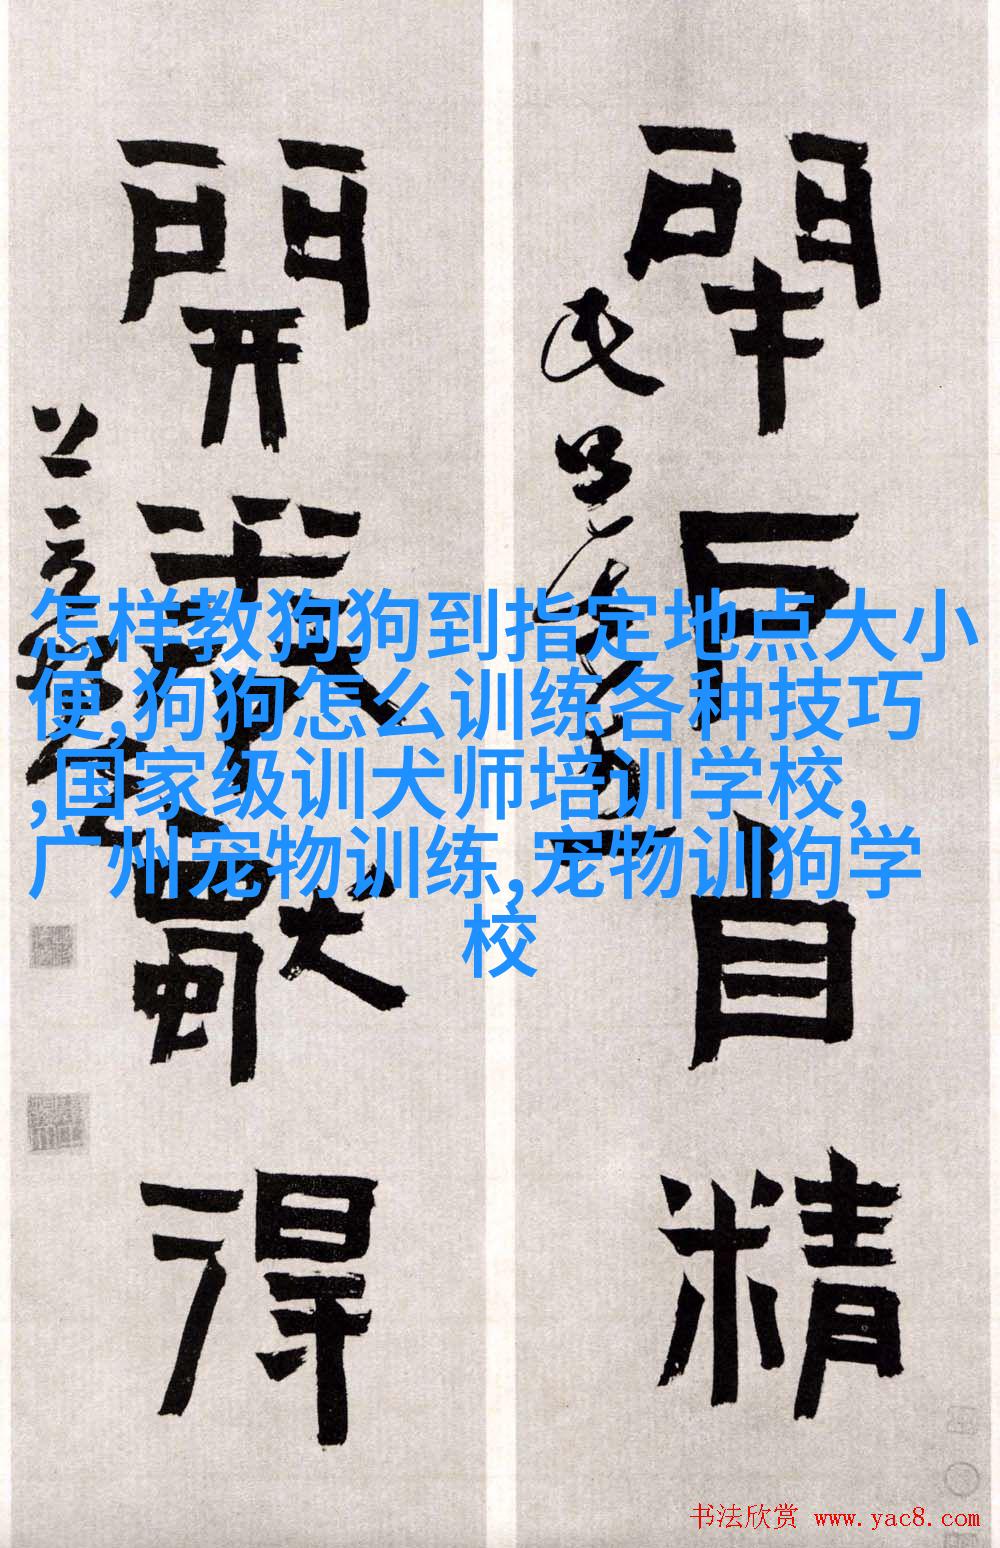 閉戶自精
開卷獨得
怎样教狗狗到指定地点大小
便,狗狗怎么训练各种技巧
,国家级训犬师培训学校,
广州宠物训练,宠物训狗学
校
书法欣赏 www.yac8.com